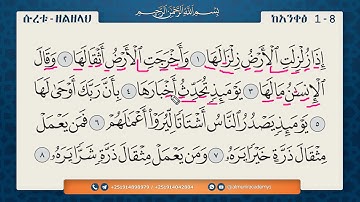 ሱረቱ-ዘልዘለህ
بِسْمِ اللَّهِ الرَّحْمَٰنِ الرَّحِيمِ
ከአንቀፅ 1-8
إِذَا زُلْزِلَتِ الْأَرْضُ زِلْزَالَهَا ١ وَأَخْرَجَتِ الْأَرْضُ أَثْقَالَهَا ٢ وَقَالَ
الْإِنسَٰنُ مَا لَهَا ٣ يَوْمَئِذٍ تُحَدِّثُ أَخْبَارَهَا ٤ بِأَنَّ رَبَّكَ أَوْحَىٰ لَهَا
٥ يَوْمَئِذٍ يَصْدُرُ النَّاسُ أَشْتَاتًا لِّيُرَوْا أَعْمَٰلَهُمْ ٦ فَمَن يَعْمَلْ
مِثْقَالَ ذَرَّةٍ خَيْرًا يَرَهُۥ ٧ وَمَن يَعْمَلْ مِثْقَالَ ذَرَّةٍ شَرًّا يَرَهُۥ ٨
+251914698979 / +251914042804